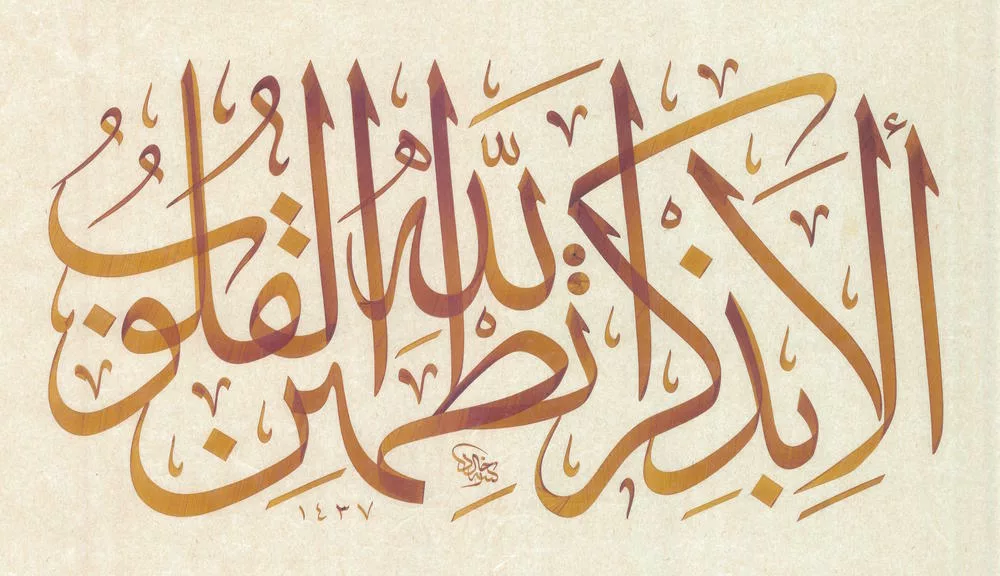 أَلَا بِذِكْرِ اللَّهِ تَطْمَئِنُّ الْقُلُوبُ
١٤٣٧